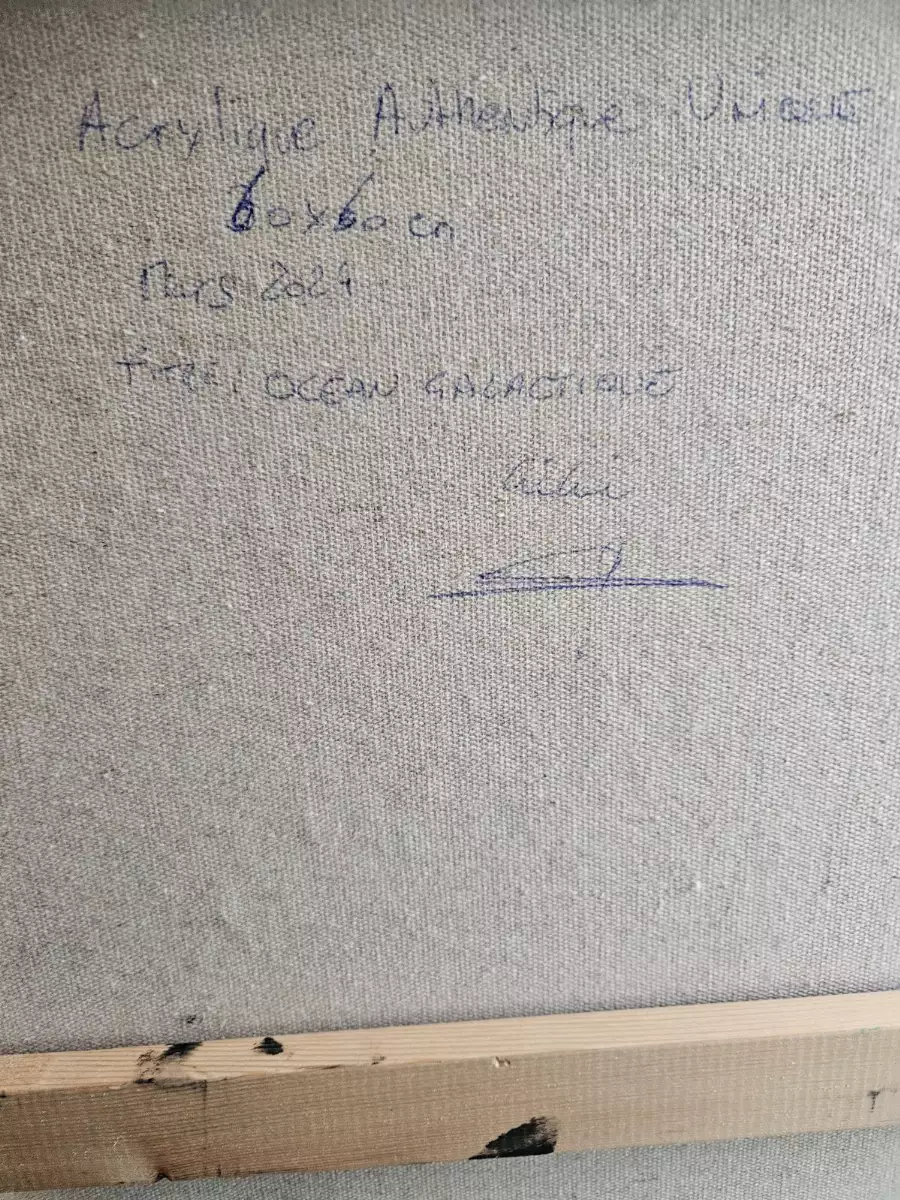 Acrylique Authentique UNIQUE
60x60 cm
Mars 2024
Titre: OCEAN GALACTIQUE